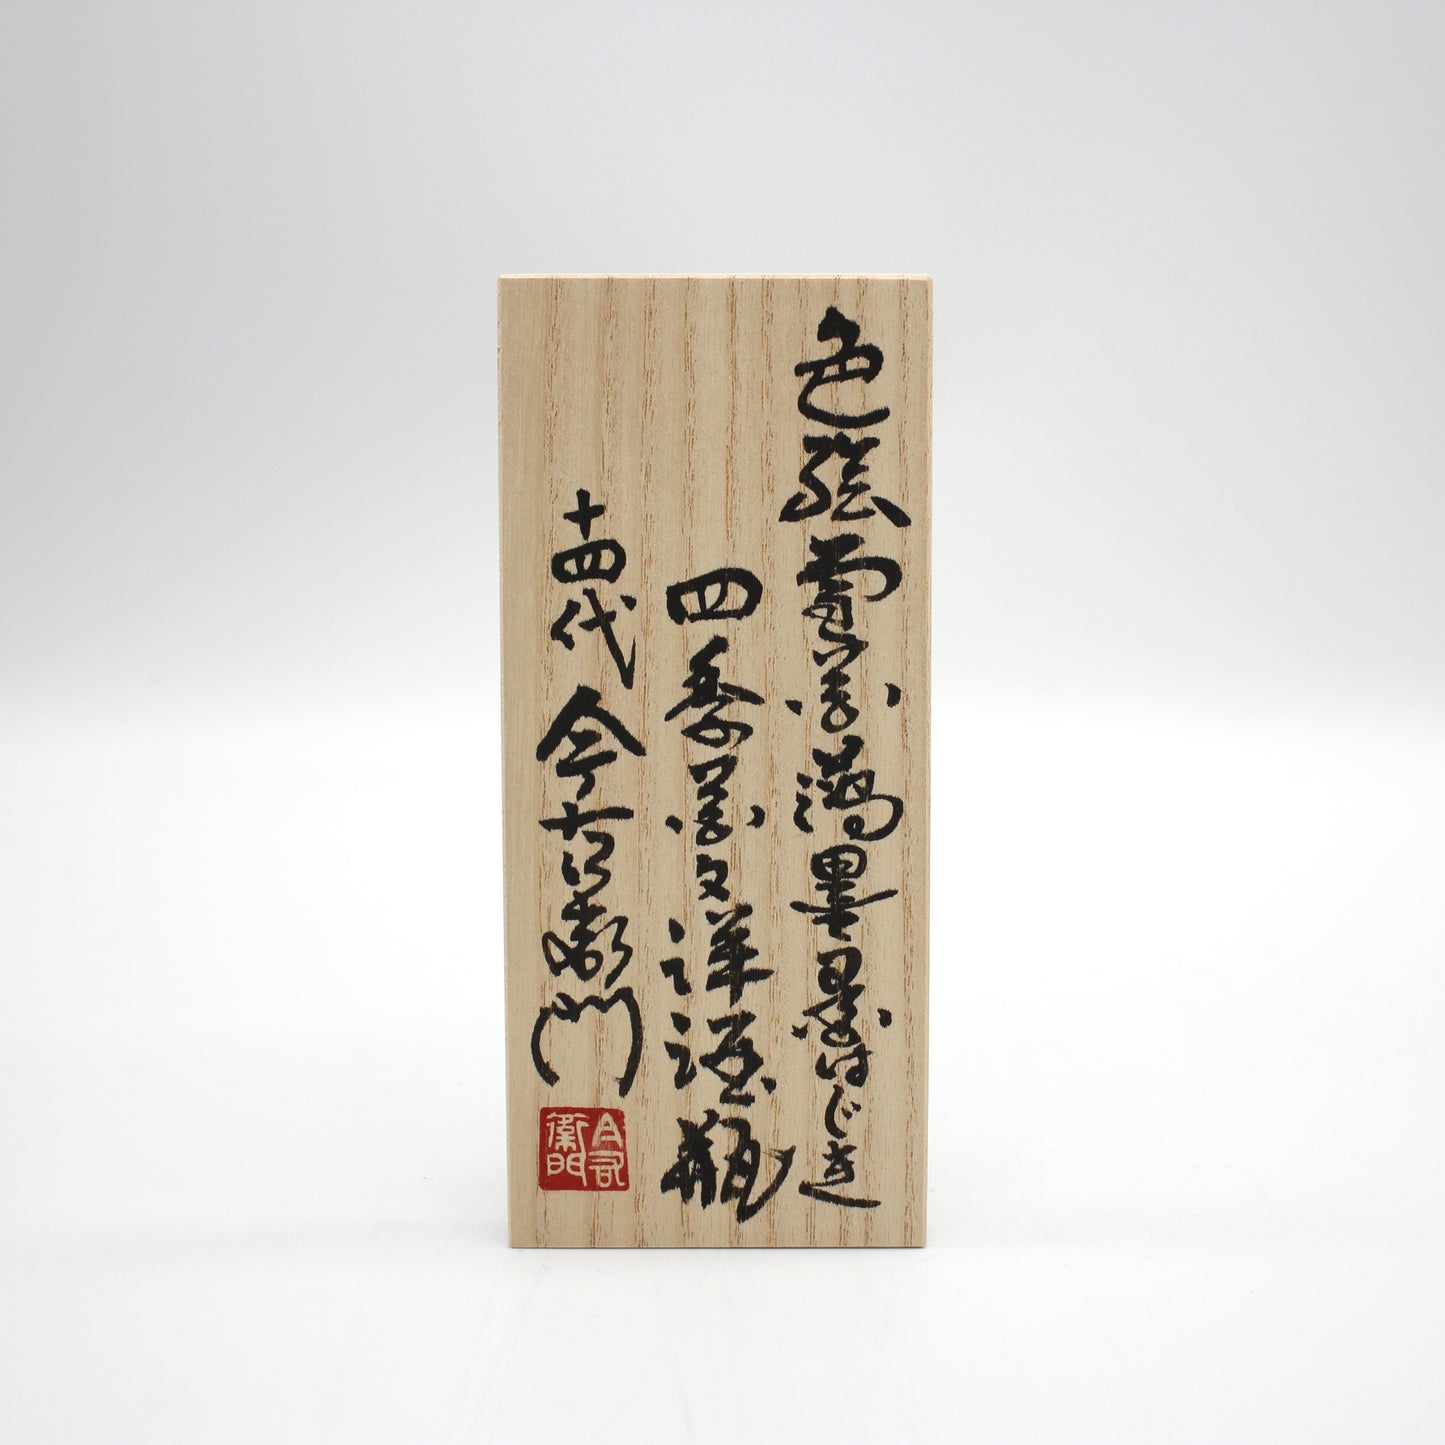 色絵雪花薄墨墨はじき
四季花文洋酒瓶
十四代 今右衛門
今右衛門